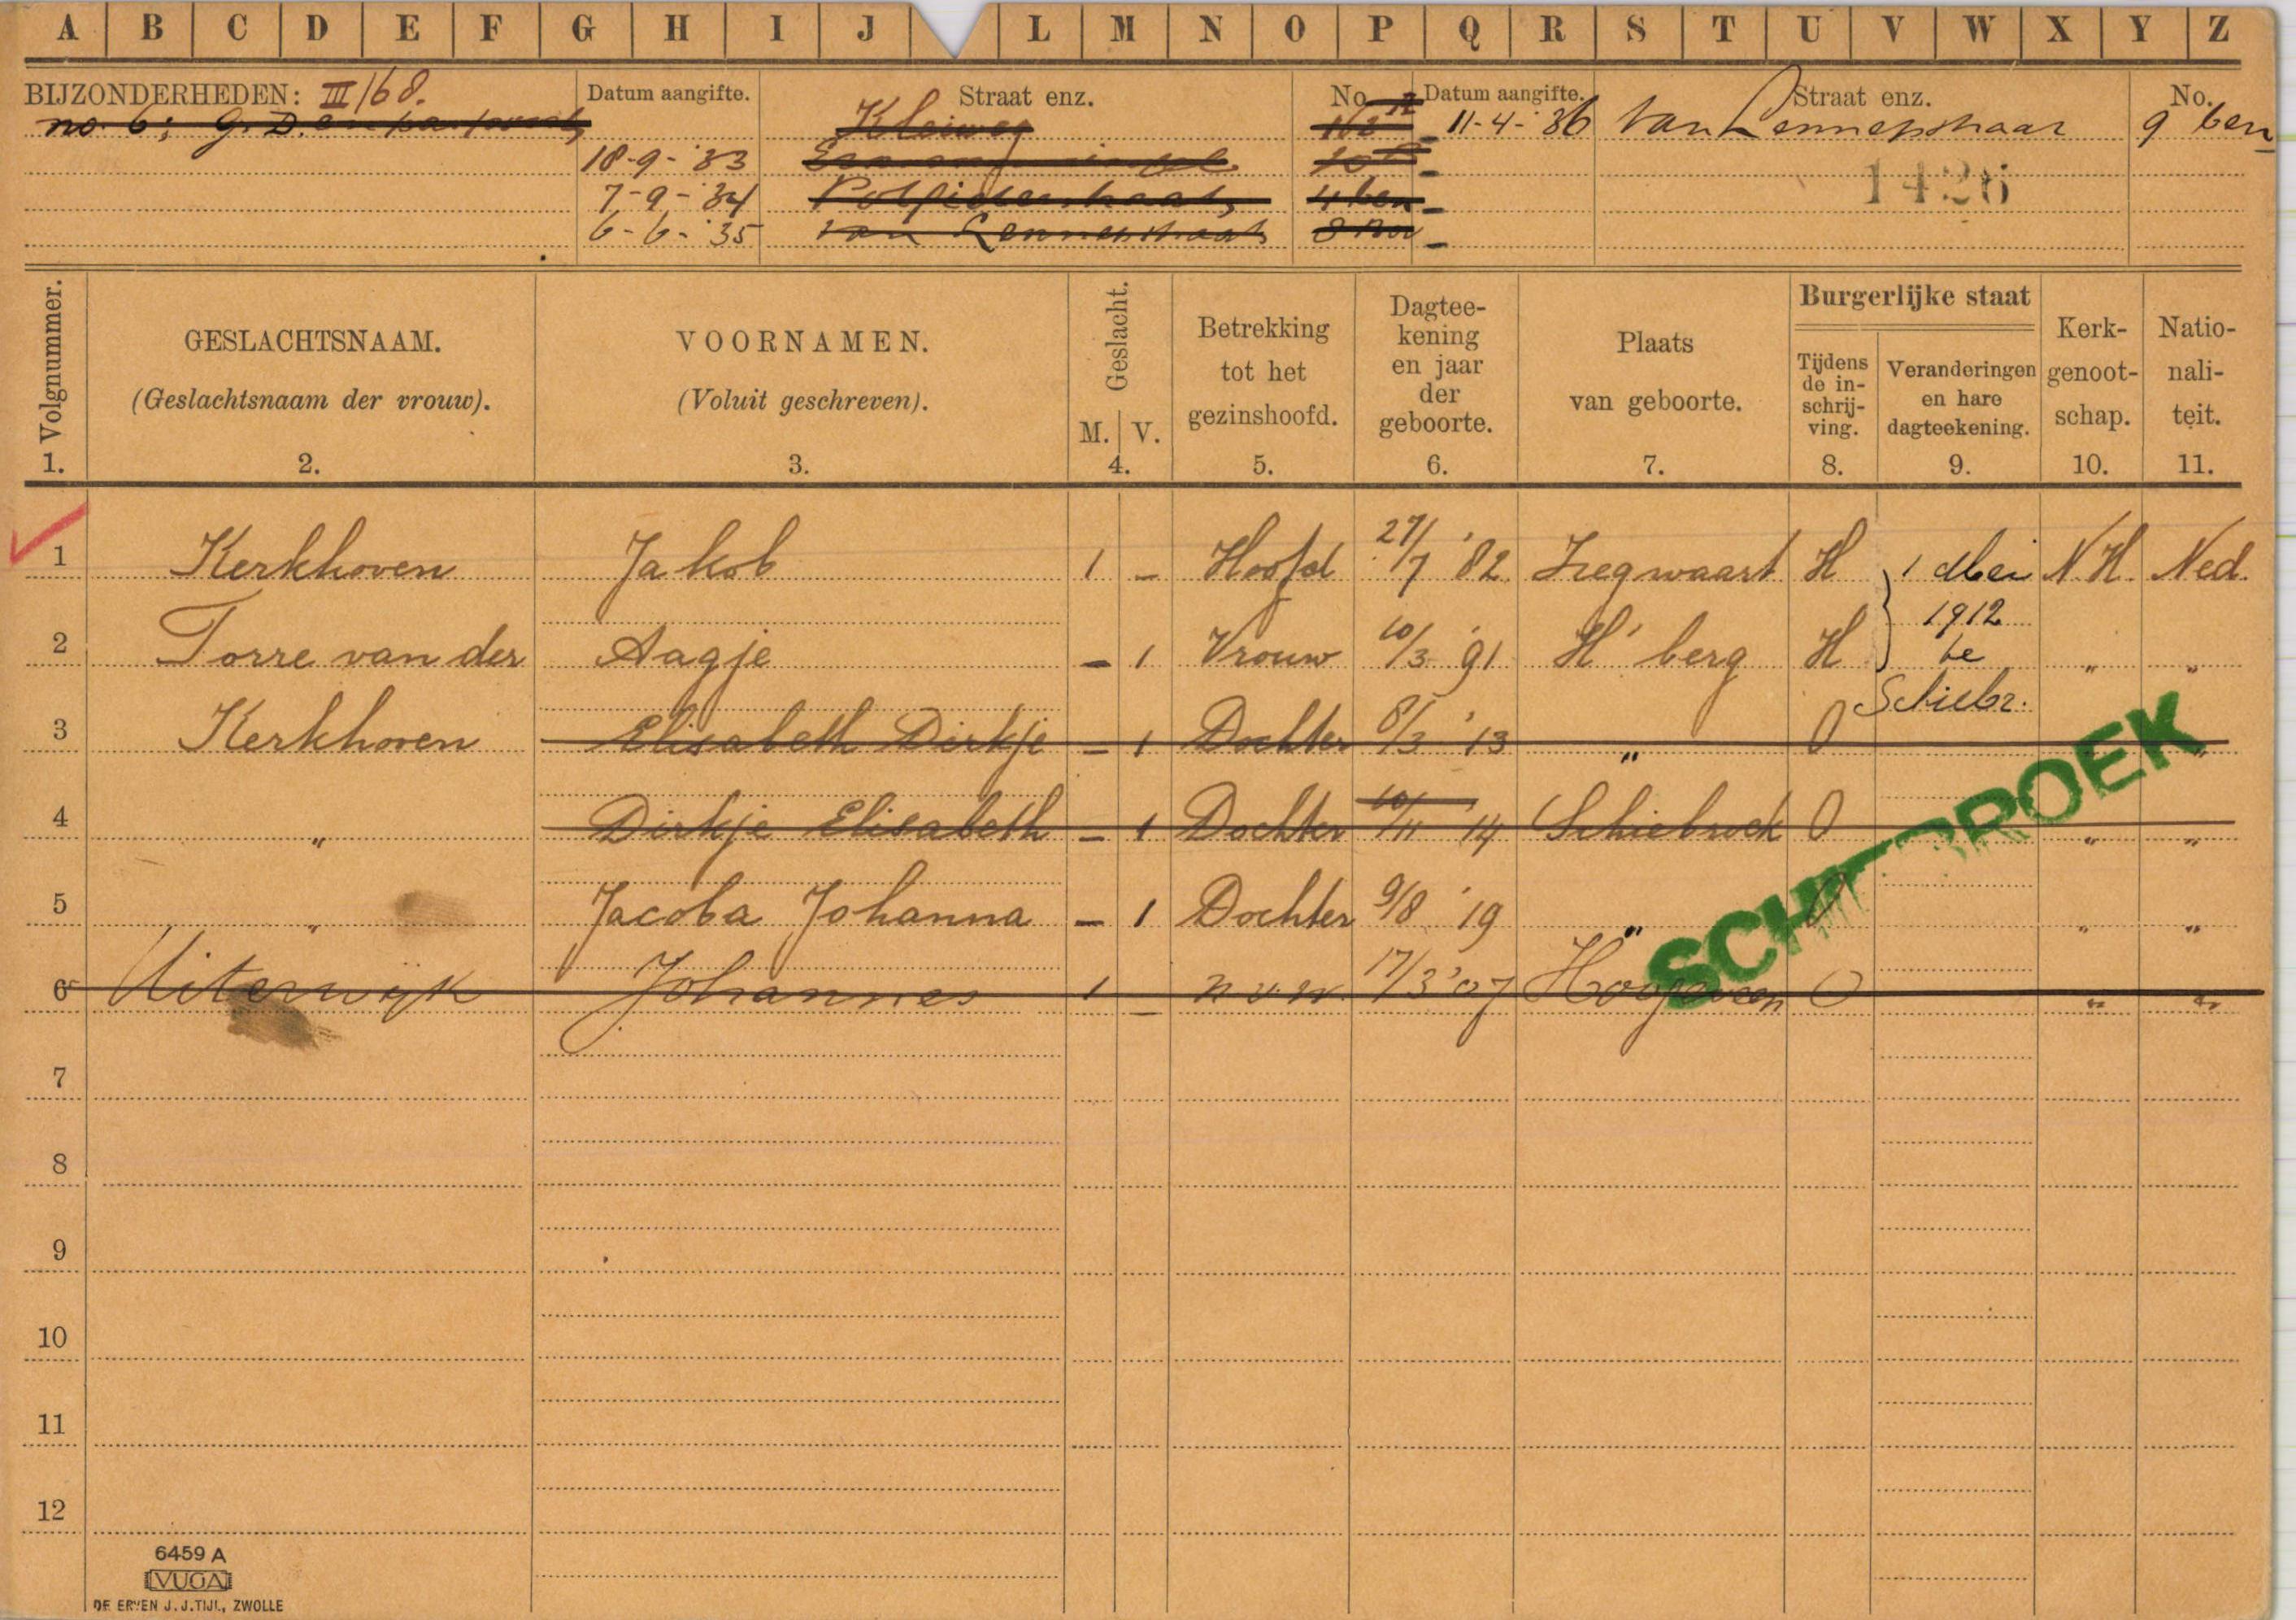 A B C D E F G H I J L M N O P Q R S T U V W X Y Z
BIJZONDERHEDEN: III/68. Datum aangifte. Straat enz. No. Datum aangifte. Straat enz. No.
no. 6; G.D. Kleiweg 11-4-'36 Van Lennepstraat 9 ben
18-9-'33
7-9-'34 Potgieterstraat 4 ben 1426
6-6-'35 van Lennepstraat 8
Volgnummer. 1.
GESLACHTSNAAM. (Geslachtsnaam der vrouw). 2.
VOORNAMEN. (Voluit geschreven). 3.
Geslacht. M. V. 4.
Betrekking tot het gezinshoofd. 5.
Dagtee-kening en jaar der geboorte. 6.
Plaats van geboorte. 7.
Burgerlijke staat
Tijdens de in-schrij-ving. 8.
Veranderingen en hare dagteekening. 9.
Kerk-genoot-schap. 10.
Natio-nali-teit. 11.
1 Kerkhoven Jakob 1 - Hoofd 27/7 '82 Zegwaart H 1 Mei N.H. Ned.
2 Torre van der Aagje - 1 Vrouw 10/3 '91 H'berg H 1912 te " "
3 Kerkhoven Elisabeth Dirkje - 1 Dochter 8/3 '13 " O Schiebr. "
4 " Dirkje Elisabeth - 1 Dochter 10/11 '14 Schiebroek O " "
5 " Jacoba Johanna - 1 Dochter 9/8 '19 " O " "
6 Uiterwijk Johannes 1 - n.v.w. 17/3 '07 Hoogeveen O " "
SCHIEBROEK
7
8
9
10
11
12
6459 A
VUGA
DE ERVEN J.J. TIJL, ZWOLLE